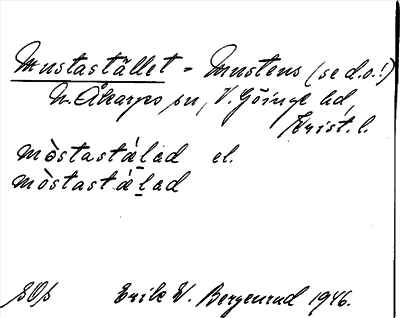 Mustastället = Mustens (se d.o.!)
N. Åkarps sn, V. Göinge hd,
Krist. l.
mòstastäḷad el.
mòstastäḷad
SOp Erik W. Bergenrud 1946.